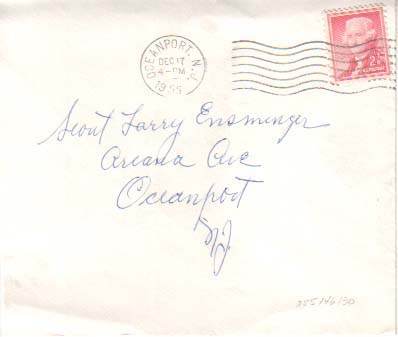 OCEANPORT, N.J.
DEC 17
4-PM
1955
2¢
Scout Larry Ensminger
Arcana Ave
Oceanport
N.J.